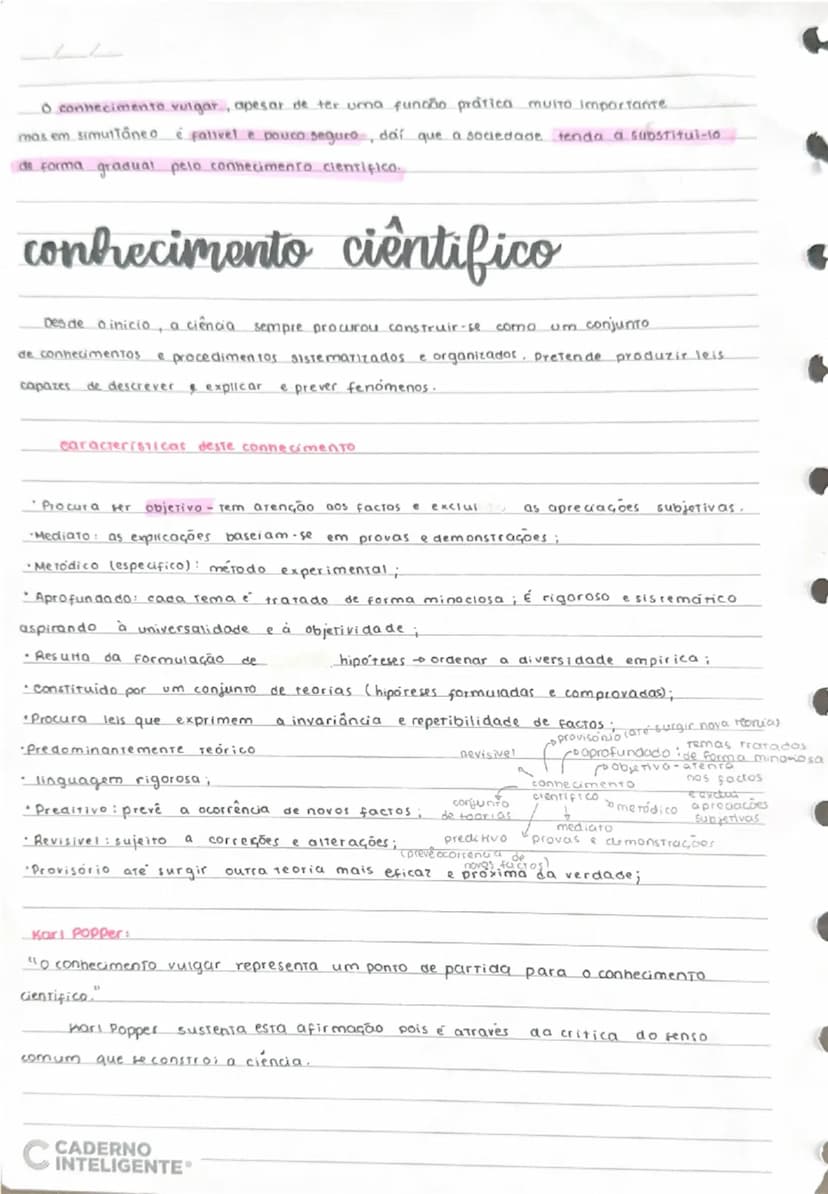 O conhecimento vulgar, apesar de ter uma função prática muito importante
mas em simultâneo é falível e pouco seguro, daí que a sociedade tenda a substituí-lo
de forma gradual pelo conhecimento científico.
conhecimento ciêntifico
Desde o inicio, a ciência sempre procurou construir-se como um conjunto
de conhecimentos e procedimentos sistematizados e organizados. Pretende produzir leis
capazes de descrever, explicar e prever fenómenos.
características deste conhecimento
· Procura ser objetivo - tem atenção aos factos e exclui as apreciações subjetivas.
· Mediato: as explicações baseiam-se em provas e demonstrações;
· Metódico (específico): método experimental;
· Aprofundado: cada tema é tratado de forma minociosa; É rigoroso e sistemático
aspirando à universalidade e à objetividade;
· Resulta da formulação de hipóteses → ordenar a diversidade empírica;
· Constituído por um conjunto de teorias (hipóteses formuladas e comprovadas);
· Procura leis que exprimem a invariância e repetibilidade de factos;
provisório (até surgir nova teoria)
· Predominantemente teórico
revisível
aprofundado: temas tratados
de forma minociosa
objetivo - atento
nos factos
e exclui
apreciações
subjetivas
· linguagem rigorosa;
conhecimento
científico
metódico
conjunto
de teorias
· Preditivo: prevê a ocorrência de novos factos;
mediato
provas e demonstrações
· Revisível: sujeito a correções e alterações;
preditivo
(prevê ocorrência de
novos factos)
· Provisório até surgir outra teoria mais eficaz e próxima da verdade;
Karl Popper:
"O conhecimento vulgar representa um ponto de partida para o conhecimento
cientifico."
Karl Popper sustenta esta afirmação pois é através da crítica do senso
comum que se constroi a ciência.
CADERNO
INTELIGENTE®